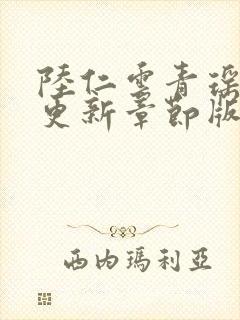 陸仁雲青瑶
更新章節版
西内瑪利亞